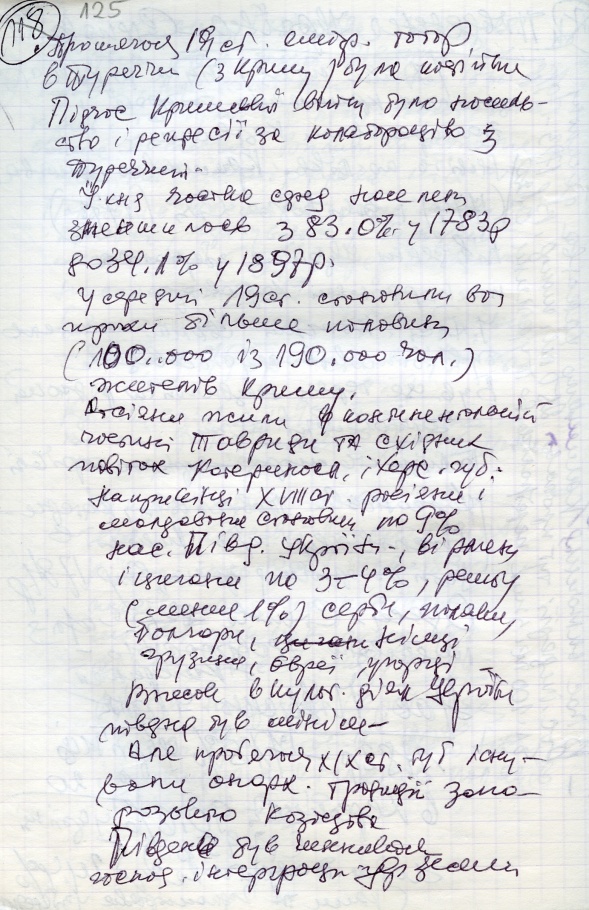 125
118.
Протягом 19 ст. емігр. татар
в Туреччин (з Криму) була постійна
Підчас Кримської війни було насиль-
ство і репресії за колаборацію з
Туреччині.
Їхня частка серед населен
зменшилась з 83.0% у 1783р
до 34.1% у 1897р.
У середині 19 ст. становили
більше половини
(100.000 із 190.000 чол.)
жителів Криму.
Росіяни жили в континентальній
частині Тавриди та східних
повітах Катеринос. і Херс. губ.
Наприкінці XVIII ст. росіяни і
молдавани становили по 9%
нас. Півд. України, вірмени
і цигани по 3–4%, решту
(менше 1%) серби, поляки,
болгари, німці
грузини, євреї, угорці
Внесок в культ. діяч України
півдня був мінім–
Але протягом XIX ст. тут існу-
вали традиції запо-
розького козацтва
Південь був
господ. інтеграції